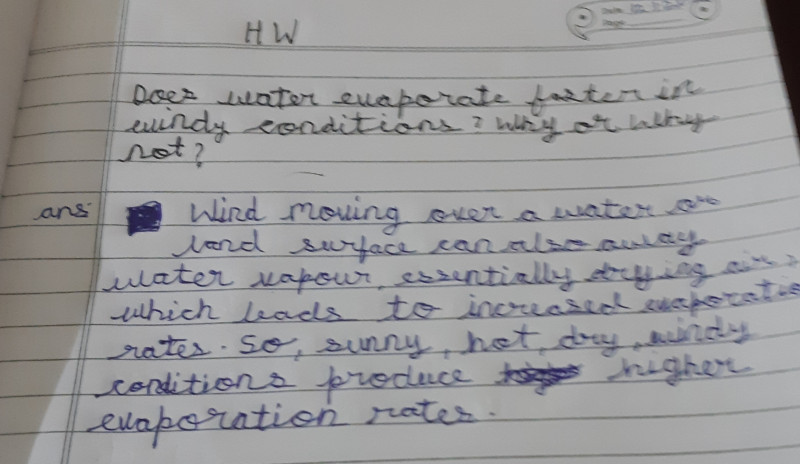 HW
Does water evaporate faster in
windy conditions? Why or why
not?
ans: Wind moving over a water or
land surface can also away
water vapour, essentially drying air,
which leads to increased evaporation
rates. So, sunny, hot, dry, windy
conditions produce higher
evaporation rates.